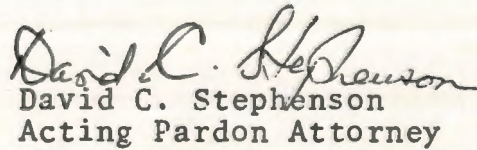 David C. Stephenson
David C. Stephenson
Acting Pardon Attorney